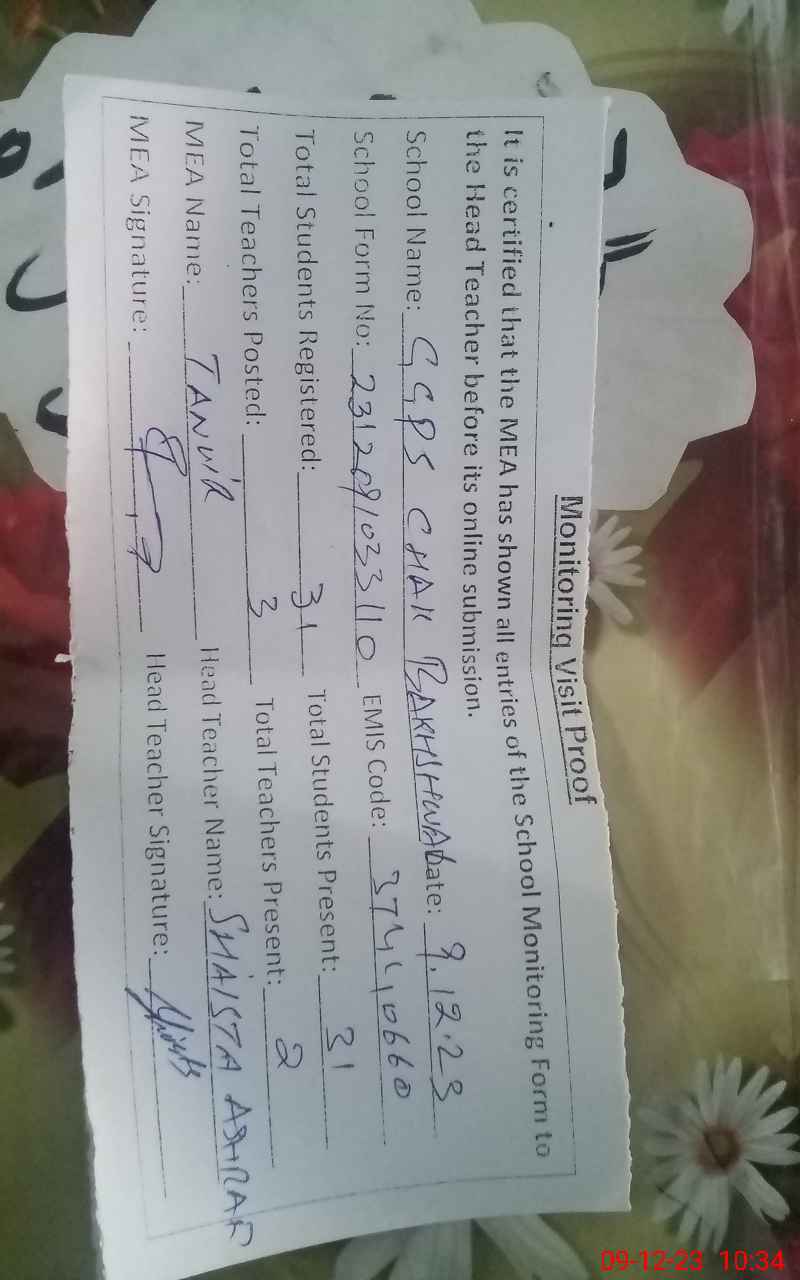 Monitoring Visit Proof
It is certified that the MEA has shown all entries of the School Monitoring Form to
the Head Teacher before its online submission.
School Name: GGPS CHAK BAKHSHWAL Date: 9.12.23
School Form No: 2312091033110 EMIS Code: 37440660
Total Students Registered: 31 Total Students Present: 31
Total Teachers Posted: 3 Total Teachers Present: 2
MEA Name: TANWIR Head Teacher Name: SHAISTA ASHRAF
MEA Signature: Head Teacher Signature:
09-12-23 10:34